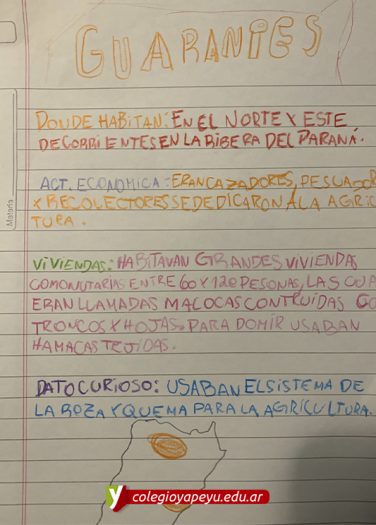 GUARANIES
DONDE HABITAN: EN EL NORTE Y ESTE
DE CORRIENTES EN LA RIBERA DEL PARANÁ.
ACT. ECONOMICA: ERAN CAZADORES, PESCADOR
Y RECOLECTORES SE DEDICARON A LA AGRIC
TURA.
VIVIENDAS: HABITAVAN GRANDES VIVIENDAS
COMONUTARIAS ENTRE 60 Y 120 PESONAS, LAS CUA
ERAN LLAMADAS MALOCAS CONTRUIDAS CO
TRONCOS Y HOJAS. PARA DOMIR USABAN
HAMACAS TEJIDAS.
DATO CURIOSO: USABAN EL SISTEMA DE
LA ROZA Y QUEMA PARA LA AGRICULTURA.
Materia
y colegioyapeyu.edu.ar